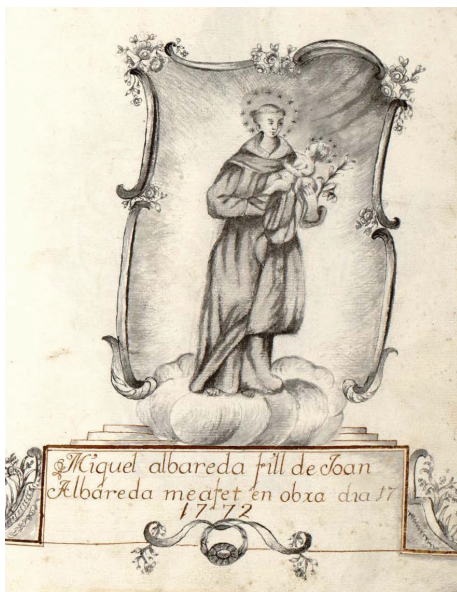 Miquel albareda fill de Joan
Albareda meafet en obxa dia 17
1772